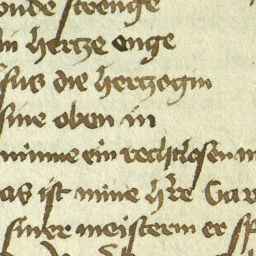 onde strenge
in hertze enge
sus die hertzogin
sine oben in
minne ein rechtlosen m
as ist mine h're Ga
siner meisterin er sp